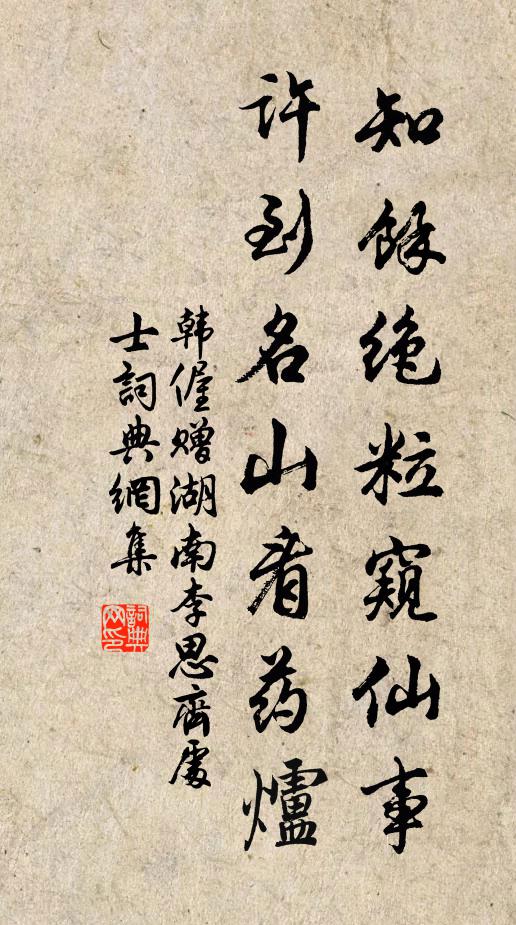 知餘绝粒窥仙事
许到名山看药爐
韩偓赠湖南李思齊處
士詞典網集
詞典
网印